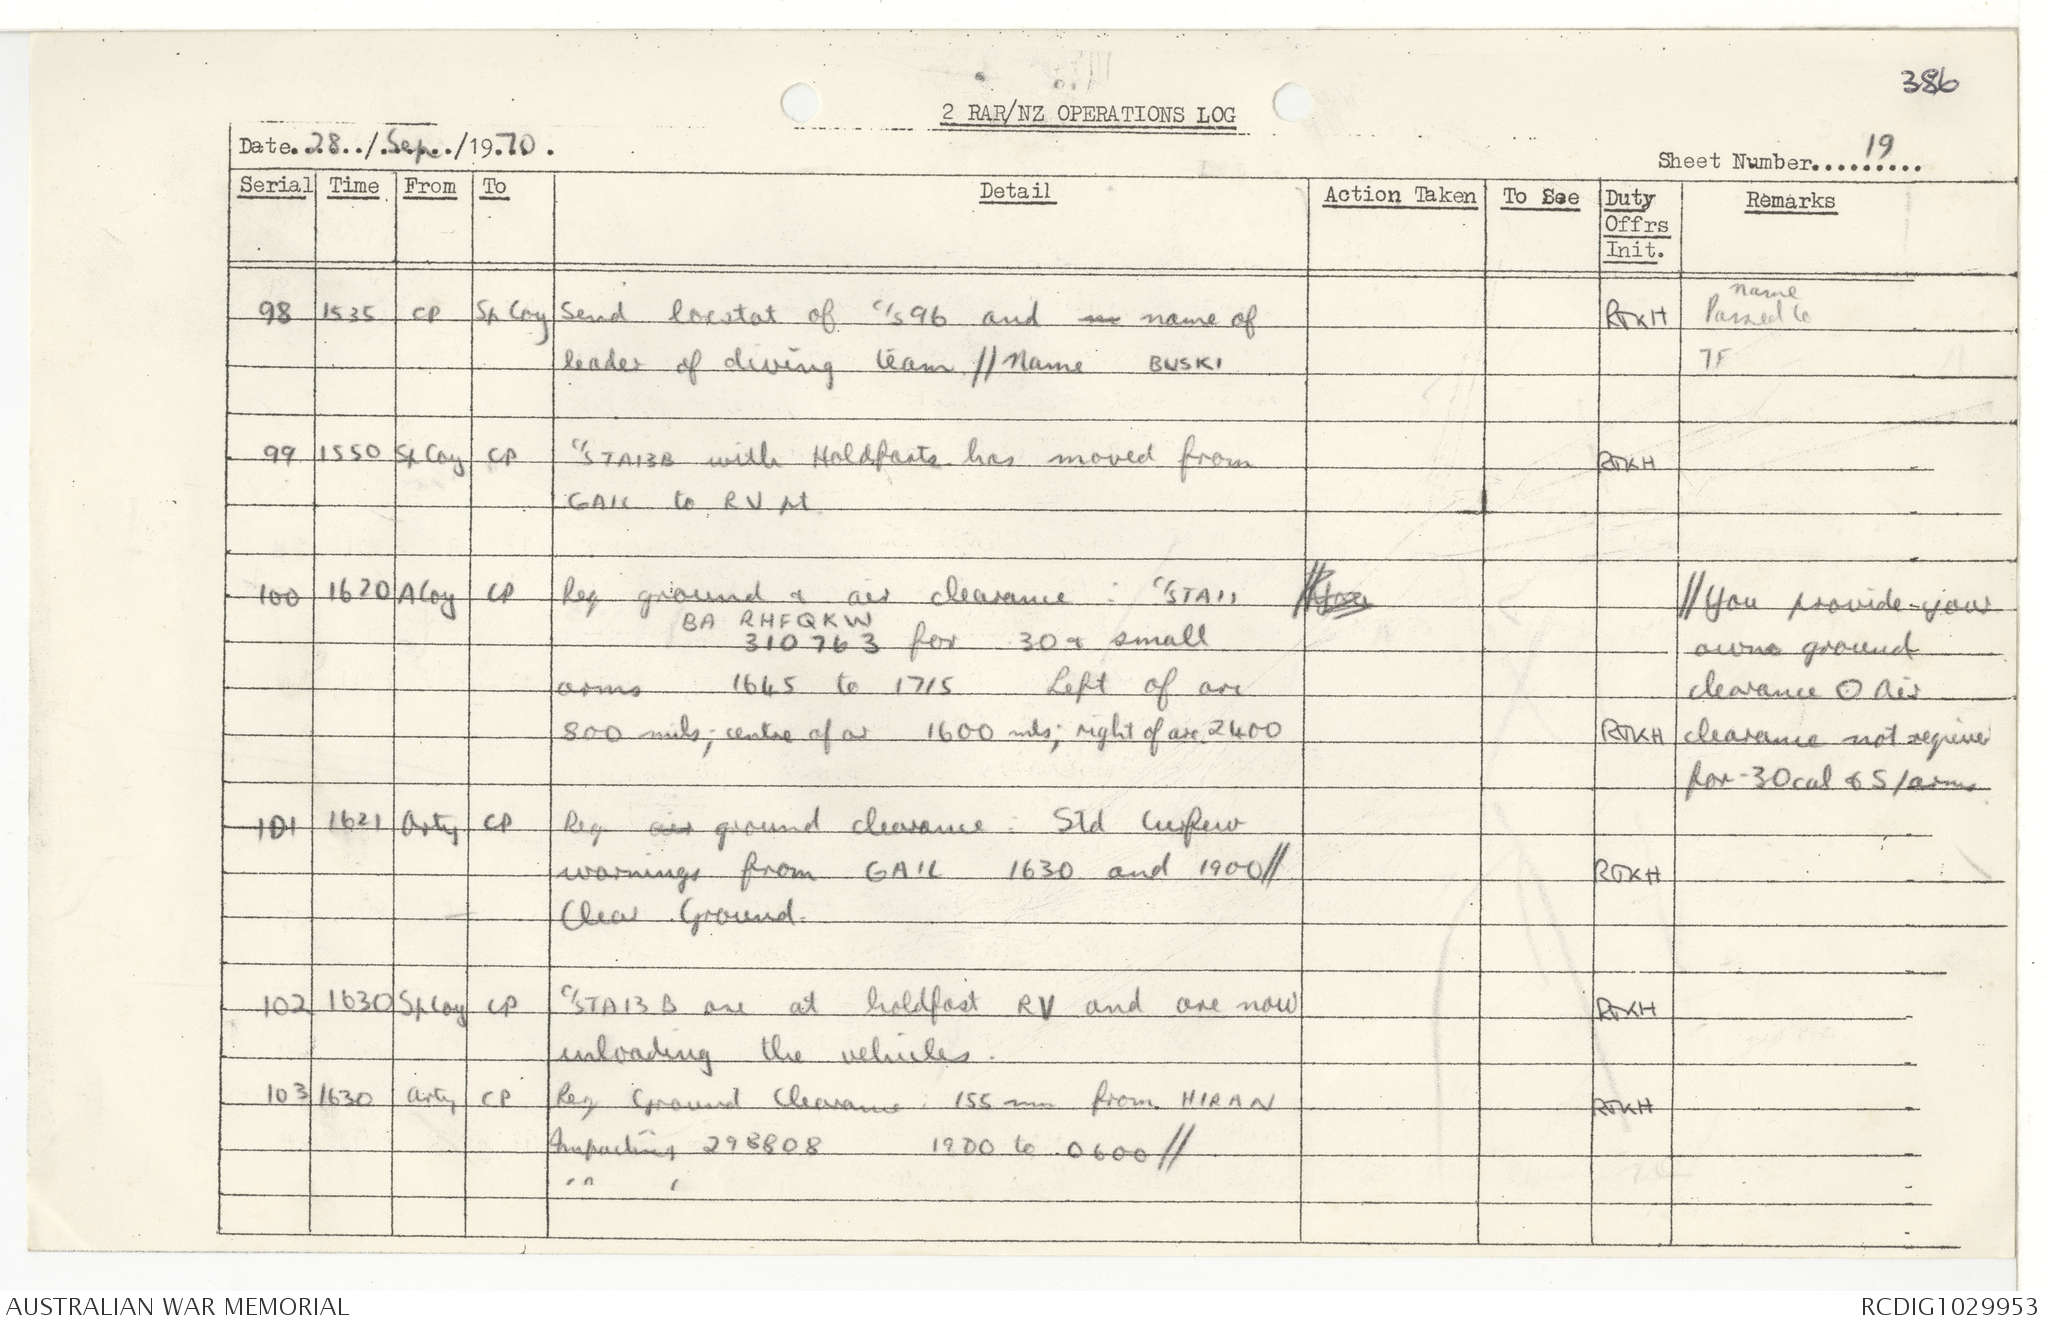 386
2 RAR/NZ OPERATIONS LOG
Date..28../.Sep../19.70.
Sheet Number...19......
Serial Time From To Detail Action Taken To See Duty Offrs Init. Remarks
98 1535 CP Sp Coy Send locstat of c/s 96 and name of RTKH name Passed to
leader of diving team // Name BUSKI 7F
99 1550 Sp Coy CP c/s TA13B with Holdfasts has moved from RTKH
GAIL to RV pt
100 1620 A Coy CP Req ground & air clearance : c/s TA11 // You provide your
BA RHFQKW
310763 for 30 & small own ground
arms 1645 to 1715 Left of arc clearance O Air
800 mils; centre of arc 1600 mls; right of arc 2400 RTKH clearance not required
for .30 cal & S/arms
101 1621 Arty CP Req air ground clearance : Std Curfew
warnings from GAIL 1630 and 1900 // RTKH
Clear Ground.
102 1630 Sp Coy CP c/s TA13B are at holdfast RV and are now RTKH
unloading the vehicles.
103 1630 Arty CP Req Ground Clearance . 155 mm from HIRAN RTKH
Impacting 298808 1900 to 0600 //
AUSTRALIAN WAR MEMORIAL
RCDIG1029953